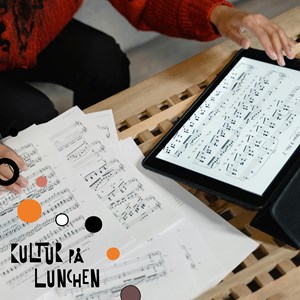 KULTUR PÅ
LUNCHEN